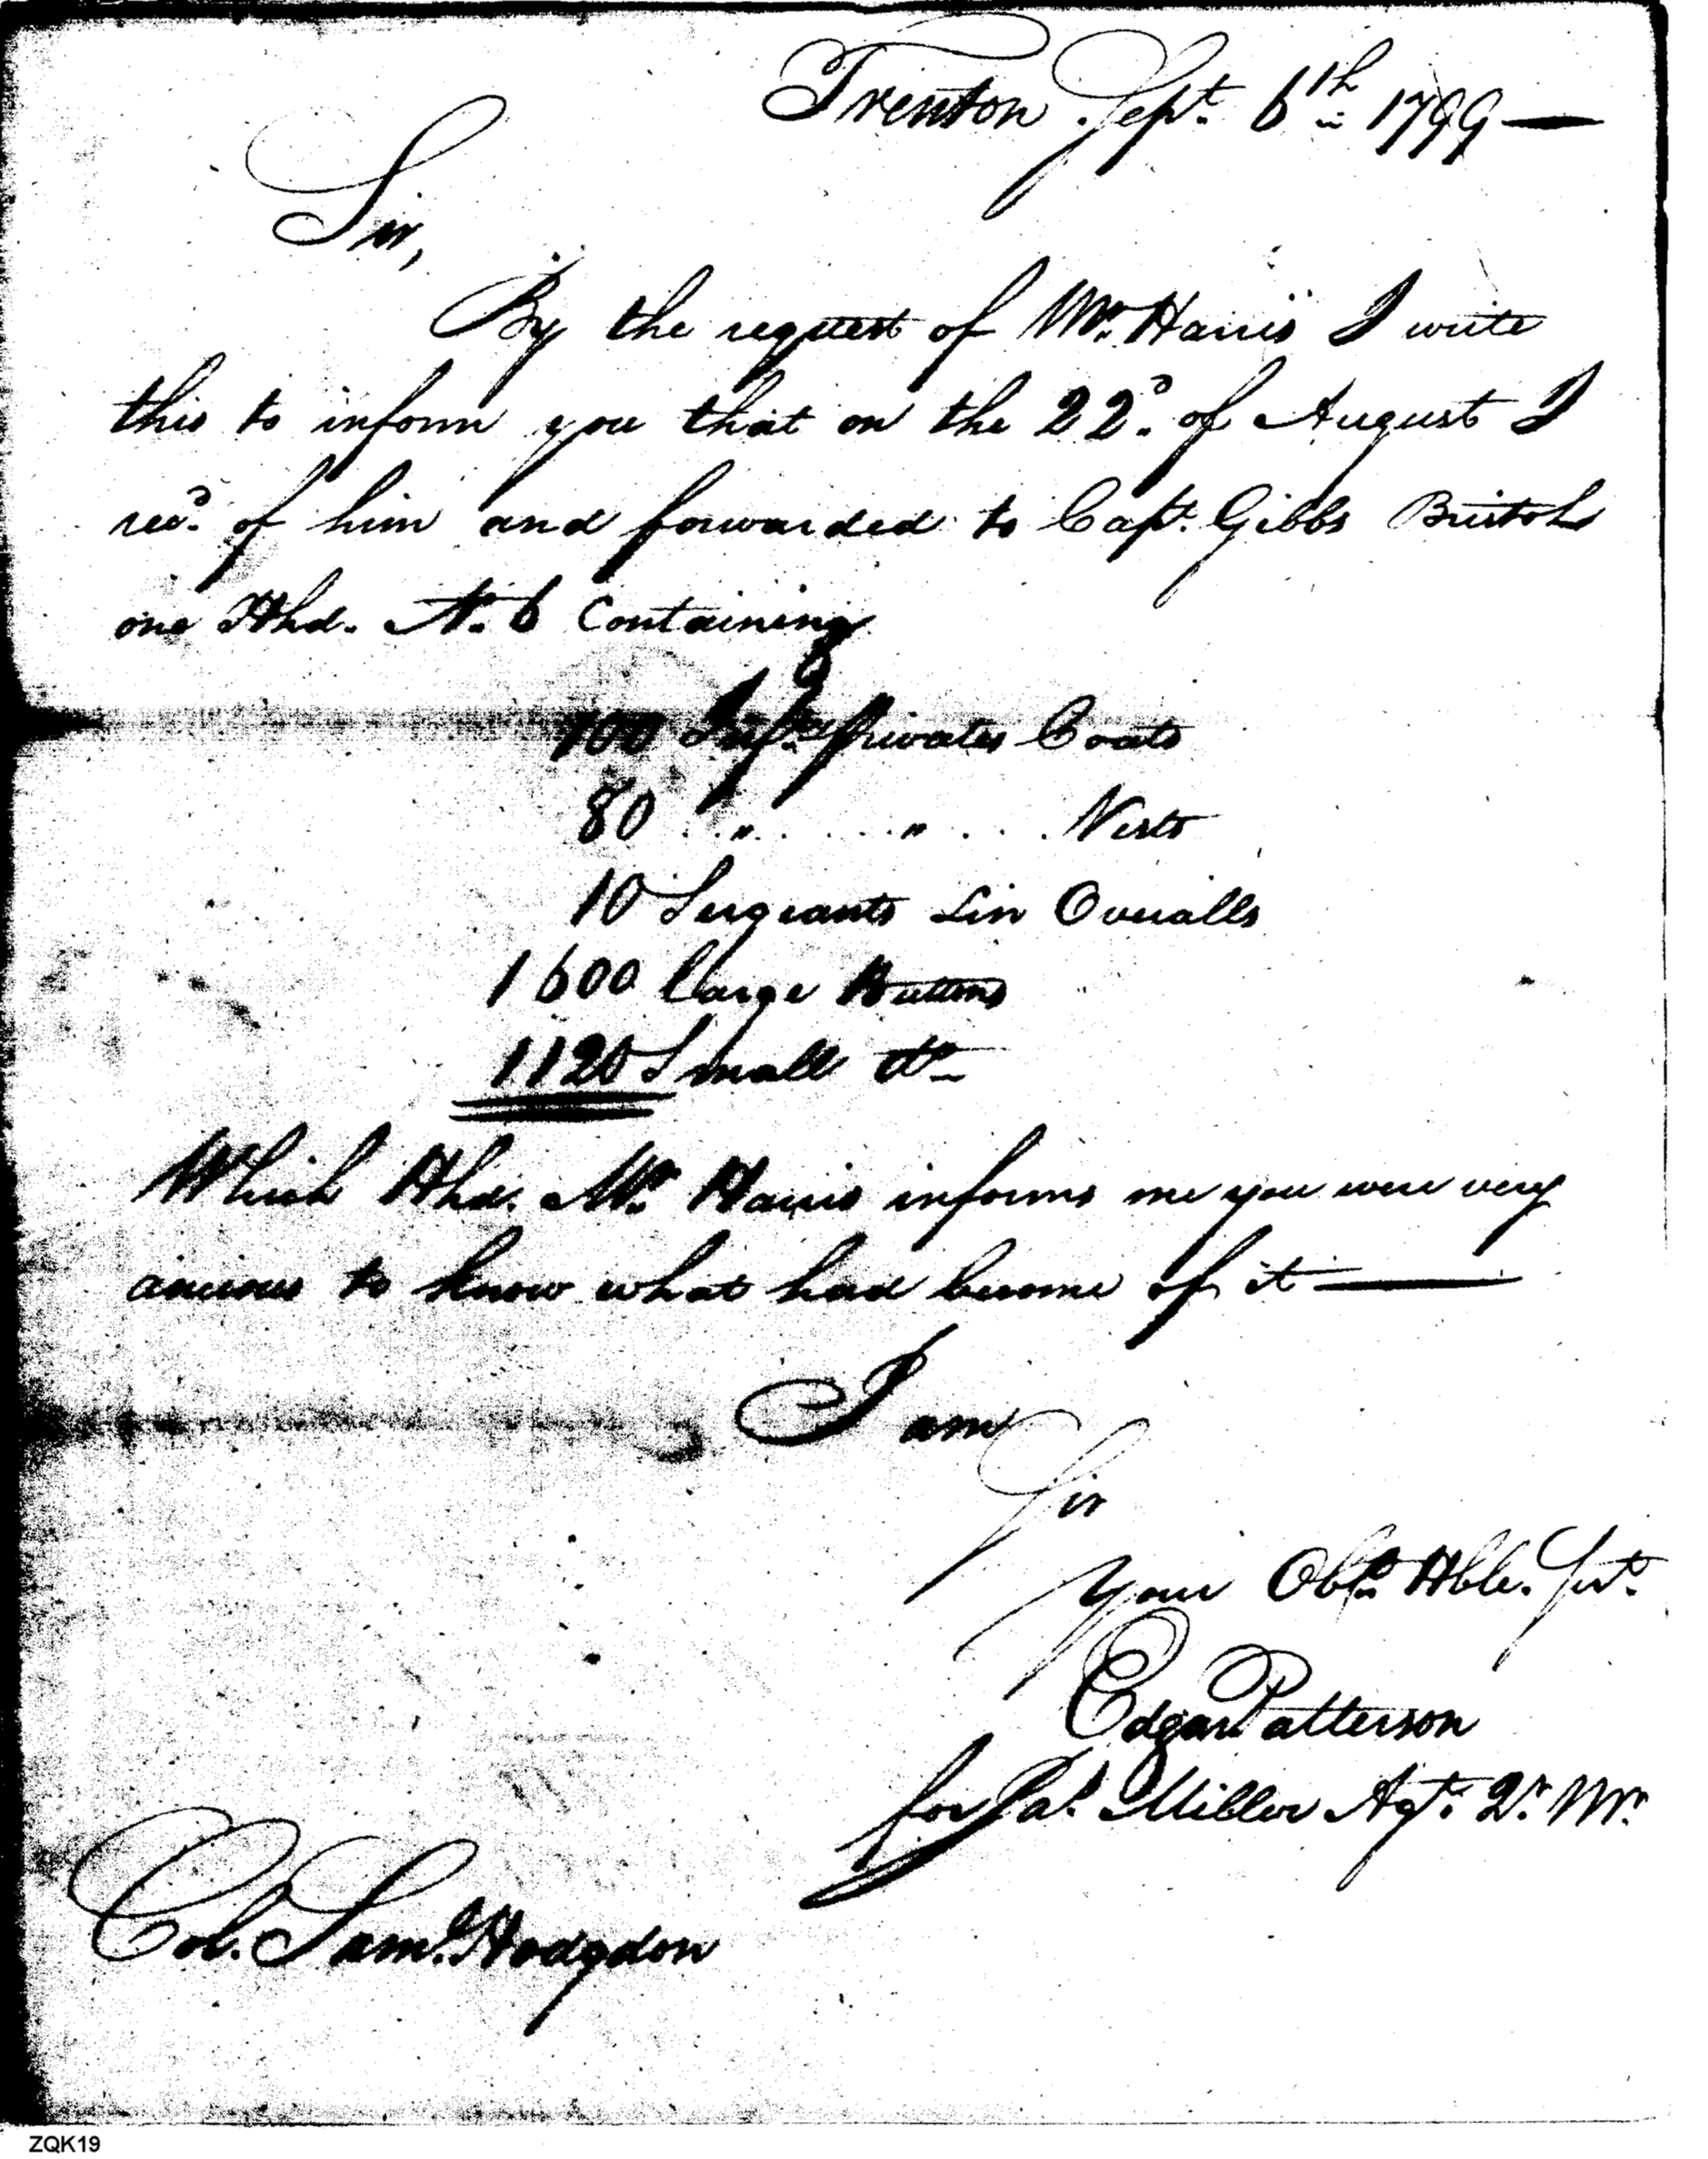 Trenton Sept. 6th 1799 —
Sir,
By the request of Mr. Harris I write
this to inform you that on the 22d. of August I
recd. of him and forwarded to Capt. Gibbs Bristol
one Hhd. N. 6 Containing
100 Infy. privates Coats
80 " " Vests
10 Sergeants Lin Overalls
1600 large Buttons
1120 Small do
Which Hhd. Mr. Harris informs me you were very
anxious to know what had become of it —
I am
Sir
Your Obt. Hble. Sert.
Edgar Patterson
for Jas. Miller Agt. Qr. Mr.
Col. Saml. Hodgdon
ZQK19